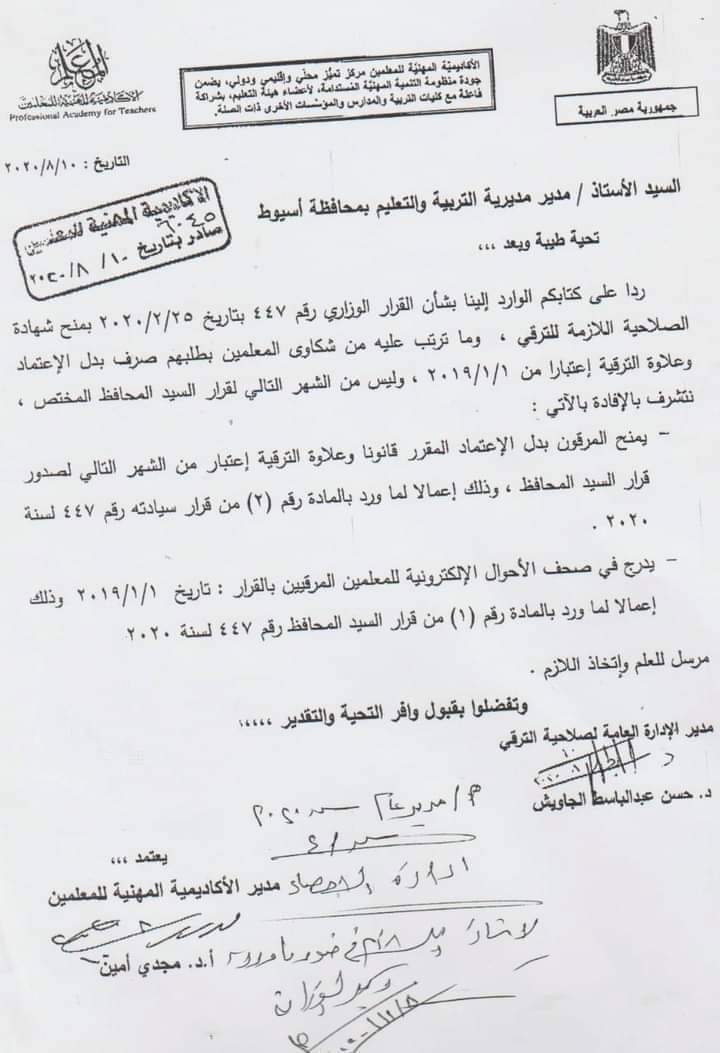 الأكاديمية المهنية للمعلمين
Professional Academy for Teachers
الأكاديميّة المهنيّة للمعلمين مركز تميّز محلّي وإقليمي ودولي، يضمن
جودة منظومة التنمية المهنيّة المُستدامة، لأعضاء هيئة التعليم، بشراكة
فاعلة مع كليات التربية والمدارس والمؤسّسات الأخرى ذات الصلة.
جمهورية مصر العربية
التاريخ : ٢٠٢٠/٨/١٠
الأكاديمية المهنية للمعلمين
٦٠٤٥
صادر بتاريخ ١٠ / ٨ / ٢٠٢٠
السيد الأستاذ / مدير مديرية التربية والتعليم بمحافظة أسيوط
تحية طيبة وبعد ،،،
ردا على كتابكم الوارد إلينا بشأن القرار الوزاري رقم ٤٤٧ بتاريخ ٢٠٢٠/٢/٢٥ بمنح شهادة
الصلاحية اللازمة للترقي ، وما ترتب عليه من شكاوى المعلمين بطلبهم صرف بدل الإعتماد
وعلاوة الترقية إعتبارا من ٢٠١٩/١/١ ، وليس من الشهر التالي لقرار السيد المحافظ المختص ،
نتشرف بالإفادة بالآتي :
- يمنح المرقون بدل الإعتماد المقرر قانونا وعلاوة الترقية إعتبار من الشهر التالي لصدور
قرار السيد المحافظ ، وذلك إعمالا لما ورد بالمادة رقم (٢) من قرار سيادته رقم ٤٤٧ لسنة
٢٠٢٠ .
- يدرج في صحف الأحوال الإلكترونية للمعلمين المرقيين بالقرار : تاريخ ٢٠١٩/١/١ وذلك
إعمالا لما ورد بالمادة رقم (١) من قرار السيد المحافظ رقم ٤٤٧ لسنة ٢٠٢٠
مرسل للعلم وإتخاذ اللازم .
وتفضلوا بقبول وافر التحية والتقدير ،،،،،
مدير الإدارة العامة لصلاحية الترقي
د. حسن عبدالباسط الجاويش
يعتمد ،،،
مدير الأكاديمية المهنية للمعلمين
أ.د. مجدي أمين